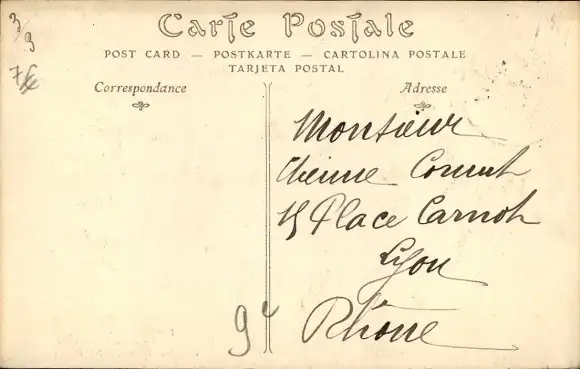 3
9
Carte Postale
POST CARD — POSTKARTE — CARTOLINA POSTALE
TARJETA POSTAL
Correspondance
Adresse
Monsieur
Etienne
15 Place Carnot
Lyon
Rhône
9